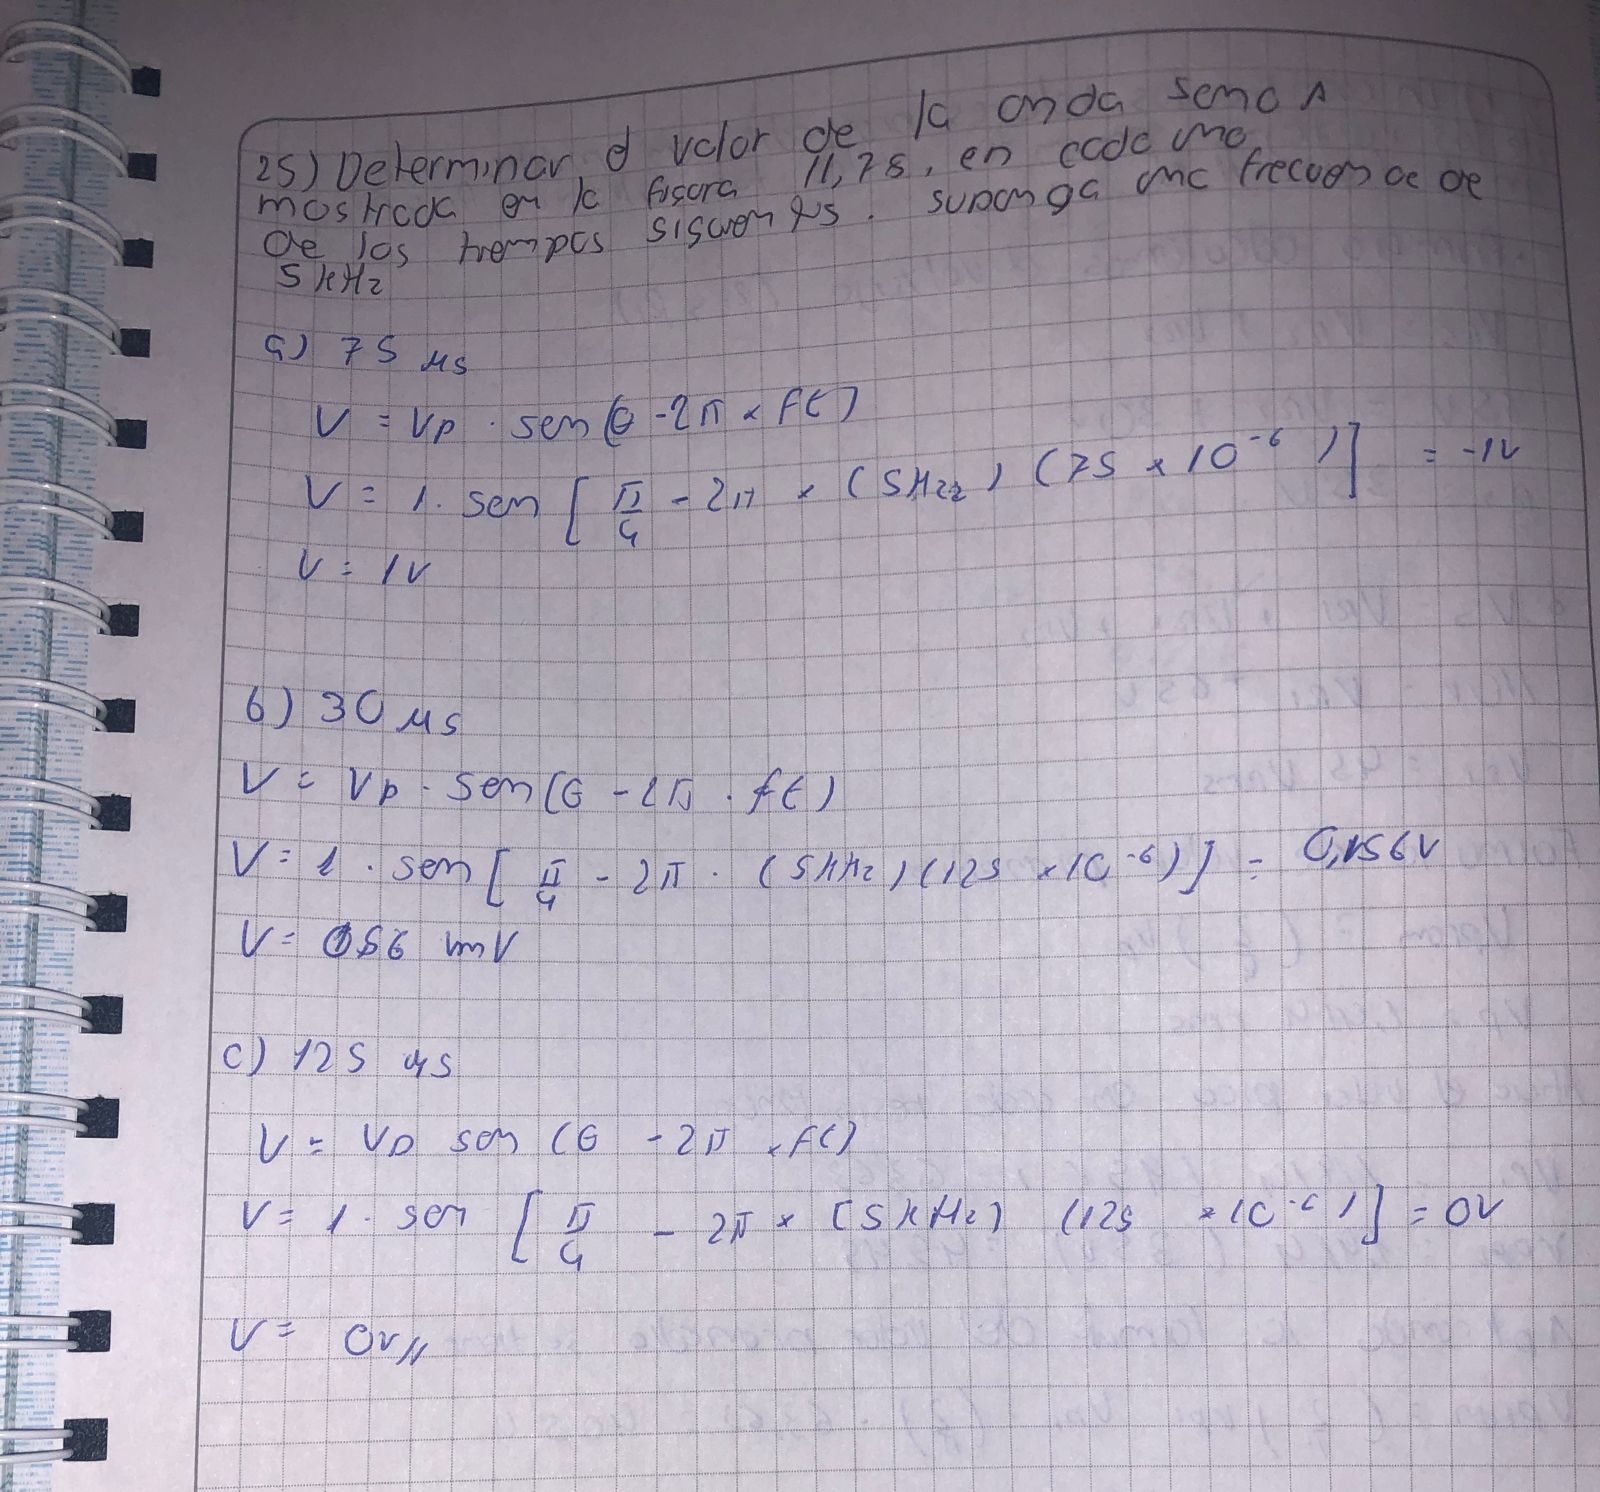 25) Determinar el valor de la onda seno A
mostrada en la figura 11,78, en cada uno
de los tiempos siguientes. suponga una frecuencia de
5 kHz
a) 75 μs
V = Vp · sen(θ - 2π × ft)
V = 1 · sen [π/4 - 2π × (5Hzz) (75 × 10⁻⁶)] = -1V
V = 1V
b) 30 μs
V = Vp · sen(θ - 2π · ft)
V = 1 · sen [π/4 - 2π · (5kHz)(125 × 10⁻⁶)] = 0,156V
V = 156 mV
c) 125 μs
V = Vp sen (θ - 2π × ft)
V = 1 · sen [π/4 - 2π × (5kHz) (125 × 10⁻⁶)] = 0V
V = 0V//